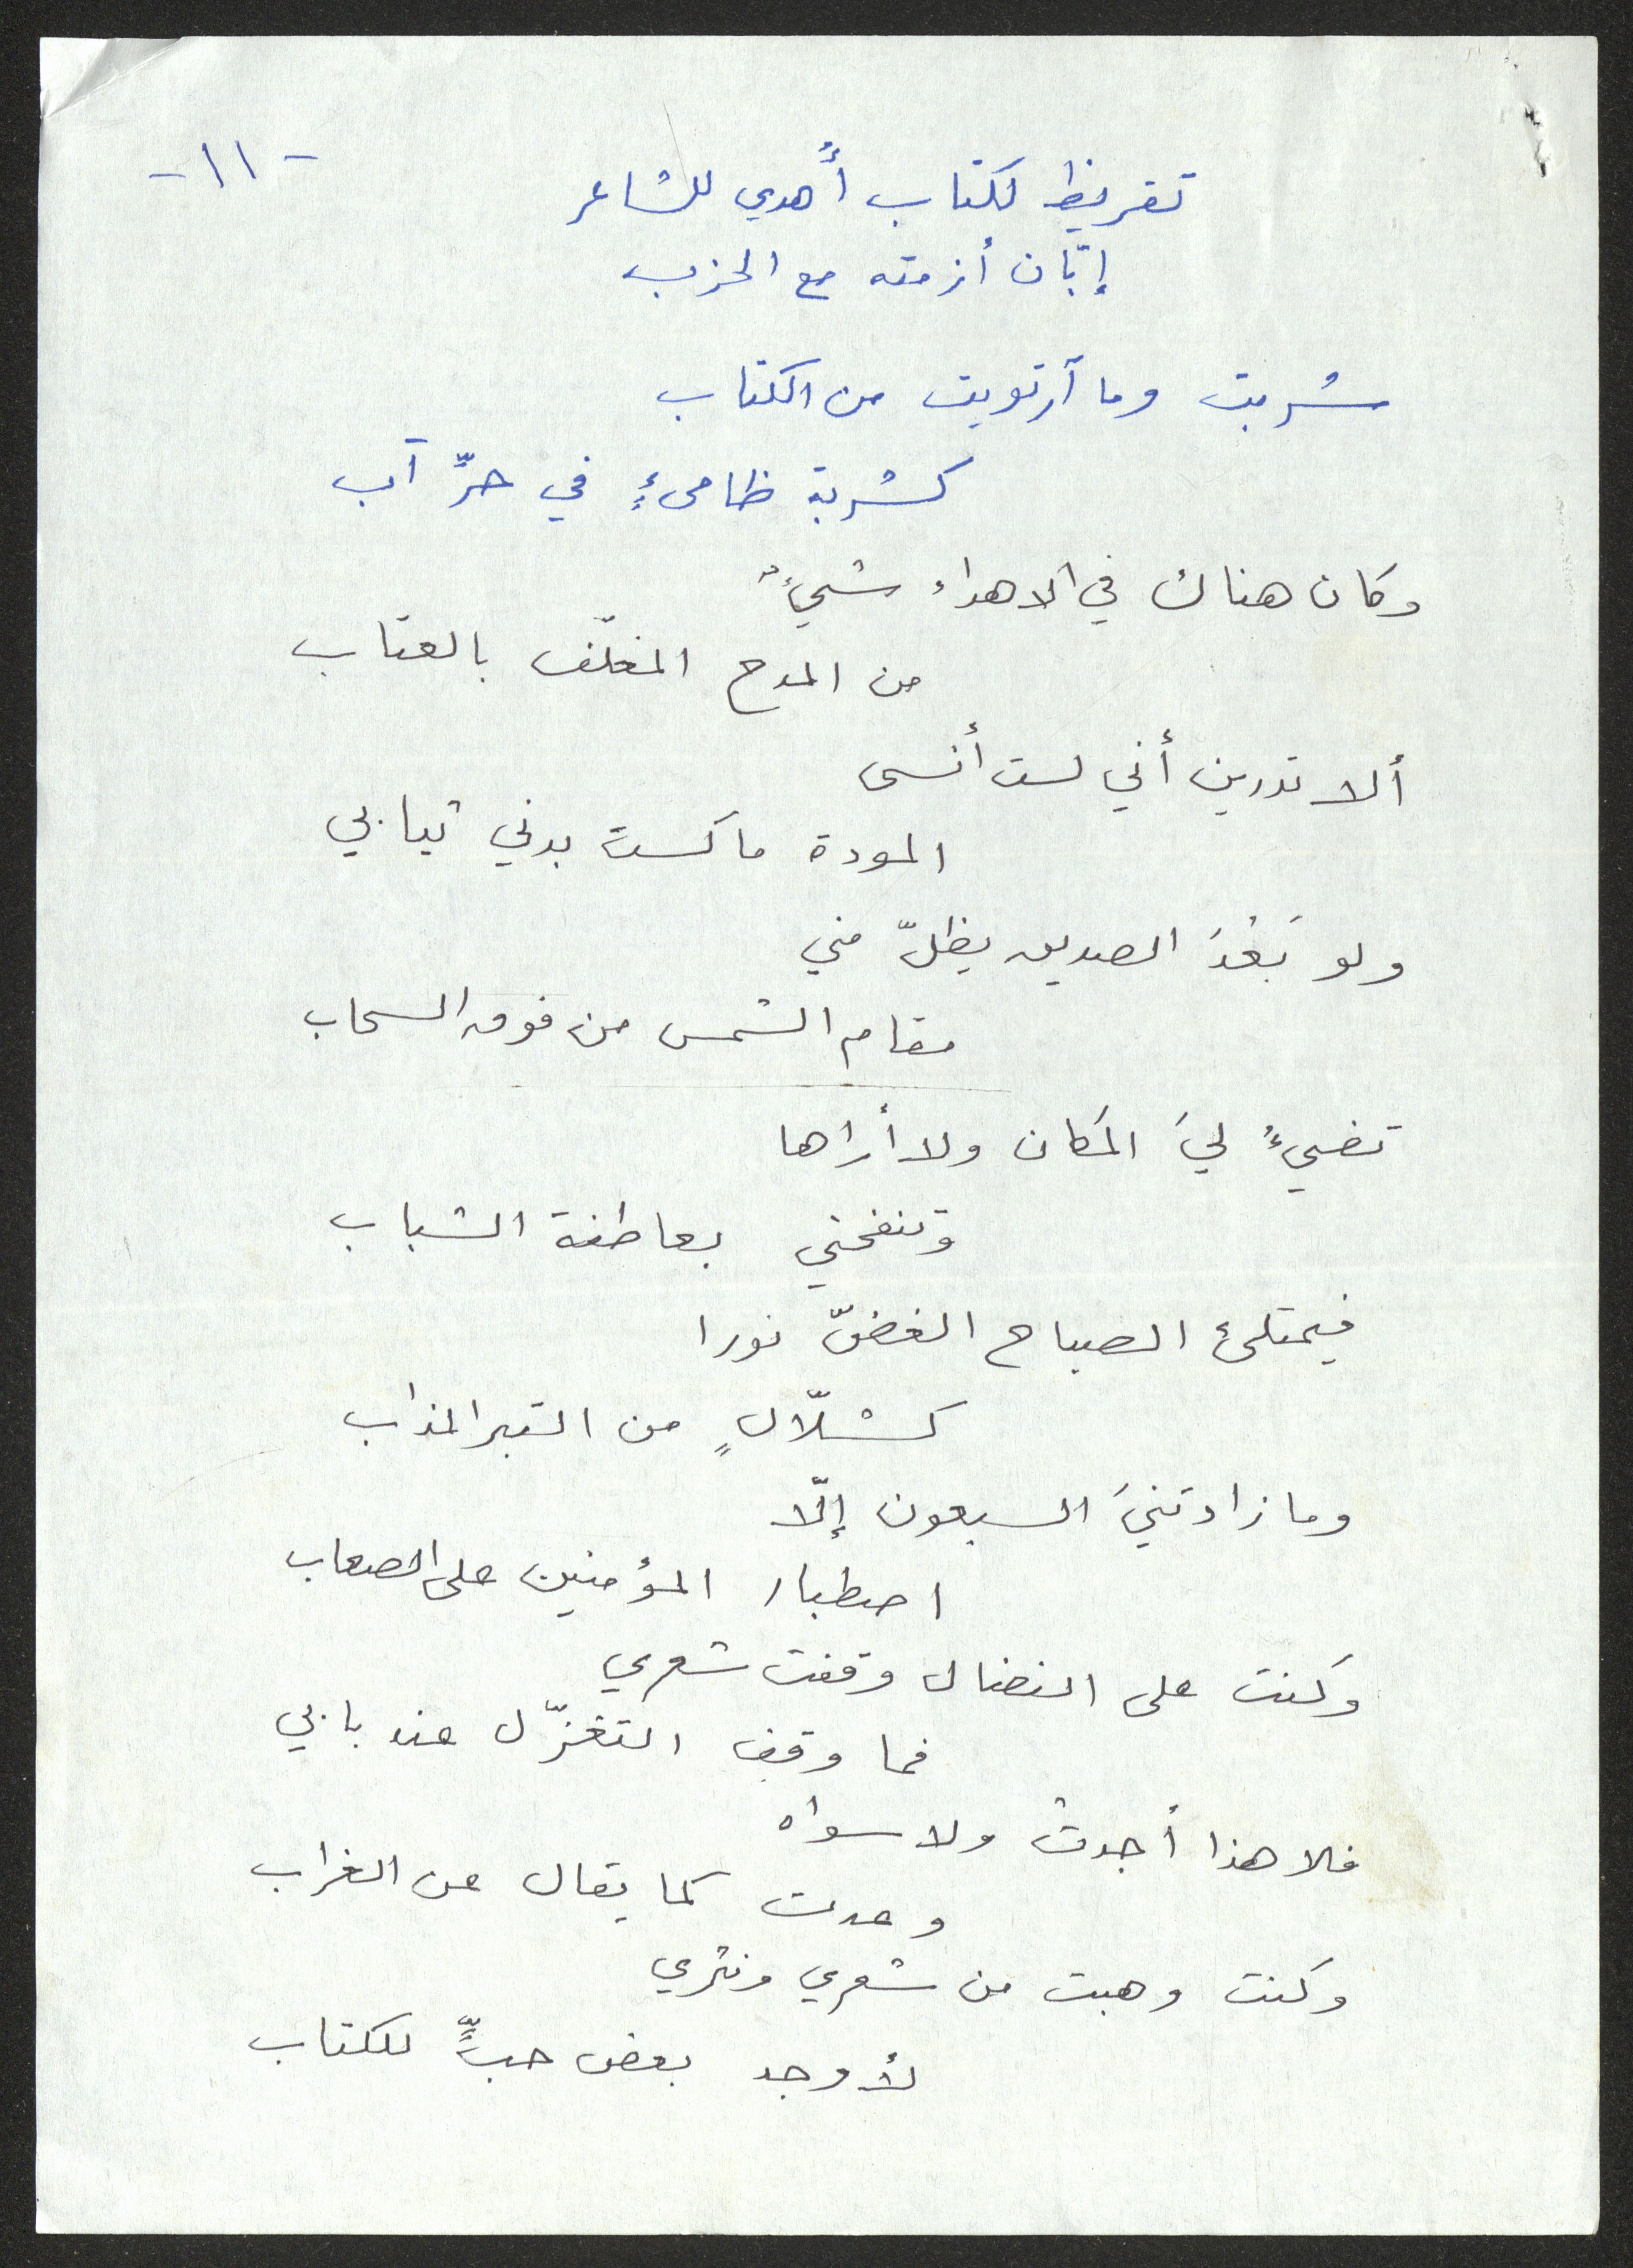 - ١١ -
تقريظ لكتاب أُهدي للشاعر
إبّان أزمته مع الحزب
شربت وما آرتويت من الكتاب
كشربة ظامئٍ في حرِّ آب
وكان هناك في الاهداء شيءٌ
من المدح المغلّف بالعتاب
ألا تدرين أني لست أنسى
المودة ما كست بدني ثيابي
ولو بَعُدَ الصديق يظلّ مني
مقام الشمس من فوق السحاب
تضيءُ ليَ المكان ولا أراها
وتنفحني بعاطفة الشباب
فيمتلئ الصباح الغضّ نورا
كشلّالٍ من التبر المذاب
وما زادتنيَ السبعون إلّا
اصطبار المؤمنين على الصعاب
وكنت على النضال وقفت شعري
فما وقف التغزّل عند بابي
فلا هذا أجدت ولا سواه
وعدت كما يقال عن الغراب
وكنت وهبت من شعري ونثري
لأوجد بعض حبٍّ للكتاب